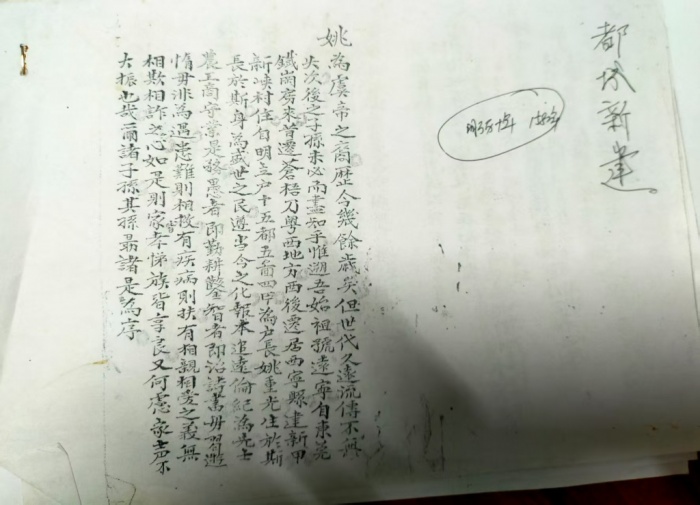 都城新建。
姚
為虞帝之裔歷今幾餘歲矣但世代久遠流傳不無
失次後之子孫未必而盡知乎惟遡吾始祖號遠寧自東莞
鐵崗房來首遷蒼梧刀粵西地方西後遷居西寧縣建新甲
新峽村住自明立户十五都五啚四甲為户長姚重光生於斯
長於斯身為盛世之民遵當今之化報本追遠倫紀為先士
農工商守業是務愚者即勤耕鑿智者即治詩書毋習遊
惰毋非為遇患難則相救有疾病則扶有相親相愛之義無
相欺相詐之心如是則家孝悌族皆享良又何慮家聲不
大振也哉爾諸子孫其孫勗諸是為序